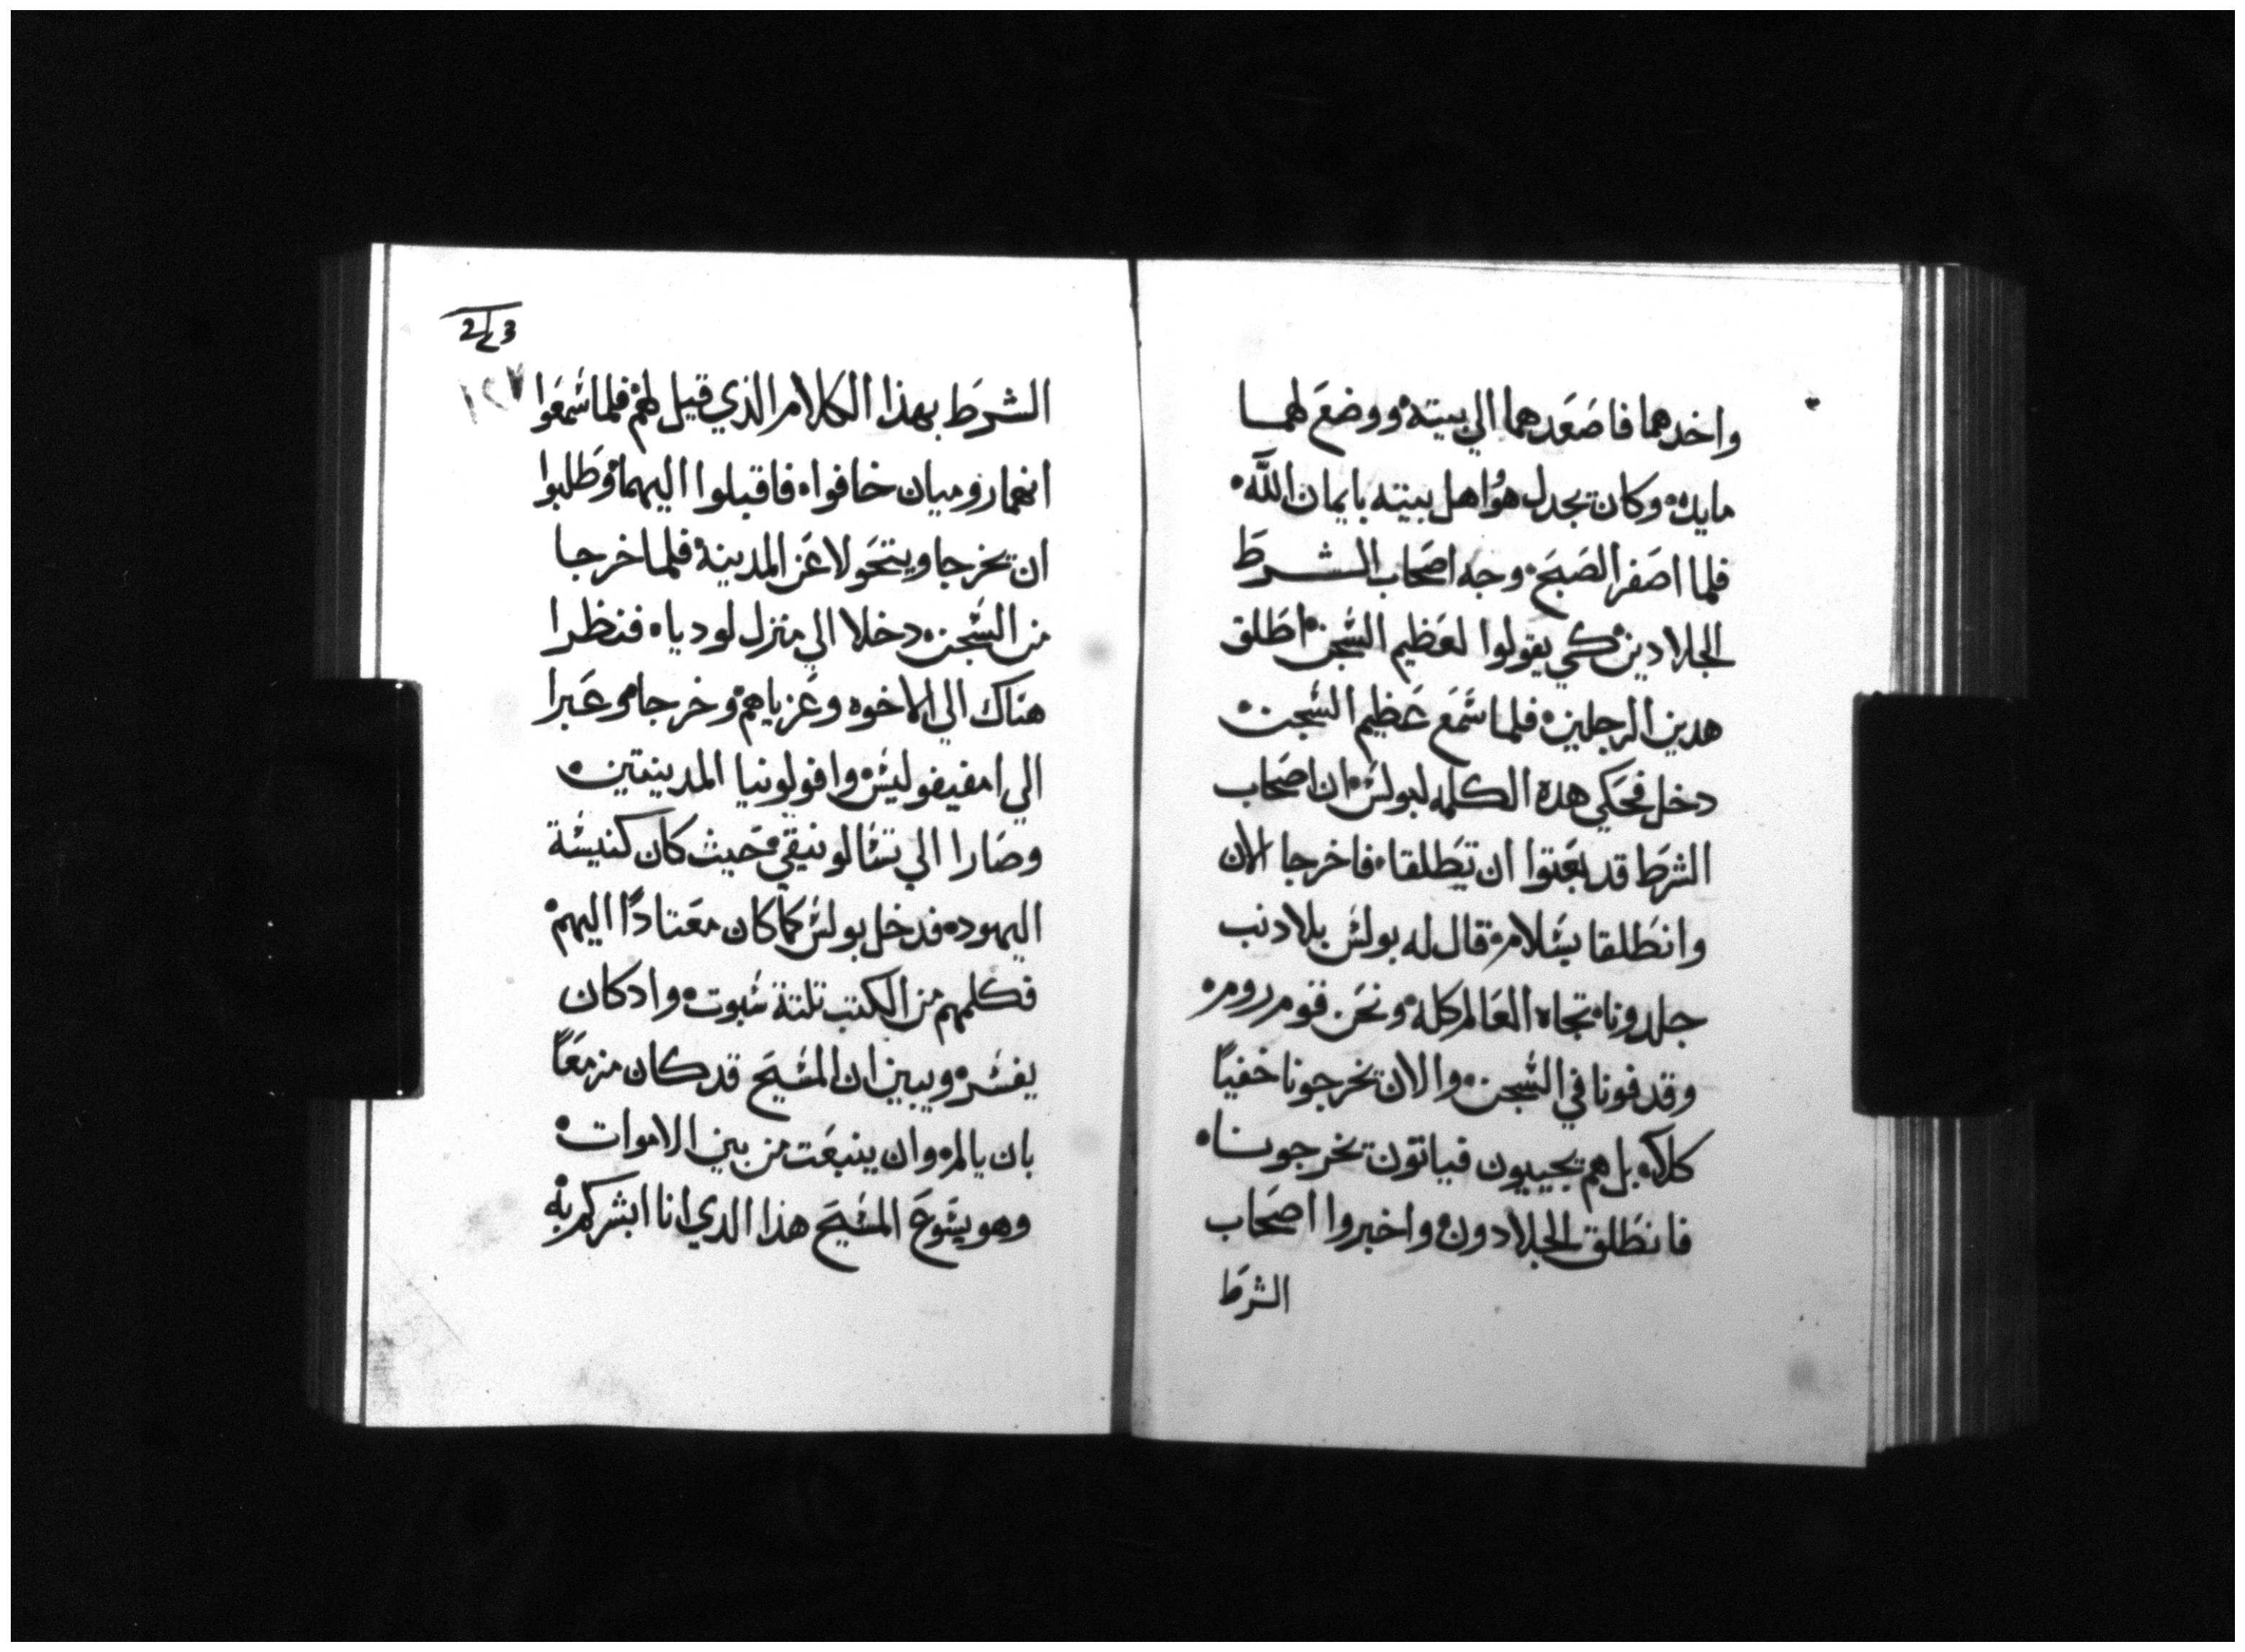 واخدهما فاصعدهما الي بيته ووضع لهما
مايده وكان يجدل هو اهل بيته بايمان الله
فلما اصفر الصبح وجه اصحاب الشرط
الجلادين كي يقولوا لعظيم السجن اطلق
هدين الرجلين فلما سمع عظيم السجن
دخل فحكي هده الكلمه لبولس ان اصحاب
الشرط قد بعتوا ان تطلقا فاخرجا الان
وانطلقا بسلام قال له بولس بلا دنب
جلدونا تجاه العالم كله ونحن قوم روم
وقدفونا في السجن والان تخرجونا خفيًا
كلا بل هم يجيبون فياتون تخرجونا
فانطلق الجلادون واخبروا اصحاب
الشرط
2/3
١٢٧
الشرط بهذا الكلام الذي قيل لهم فلما سمعوا
انهما روميان خافوا فاقبلوا اليهما وطلبوا
ان تخرجا ويتحولا عن المدينة فلما خرجا
من السجن دخلا الي منزل لوديا فنظرا
هناك الي الاخوه وعزياهم وخرجا وعبرا
الي امفيفوليس وافولونيا المدينتين
وصارا الي تسالونيقي حيث كان كنيسة
اليهود فدخل بولس كما كان معتادًا اليهم
فكلمهم من الكتب تلتة سبوت واد كان
يفسر ويبين ان المسيح قد كان مزمعًا
بان يالم وان ينبعت من بين الاموات
وهو يسوع المسيح هذا الدي انا ابشركم به